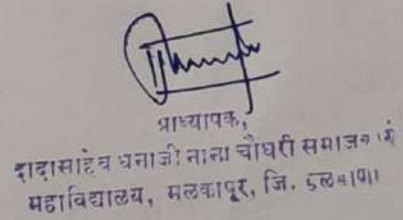 प्राध्यापक,
दादासाहेब धनाजी नाना चौधरी समाजकार्य
महाविद्यालय, मलकापूर, जि. बुलढाणा